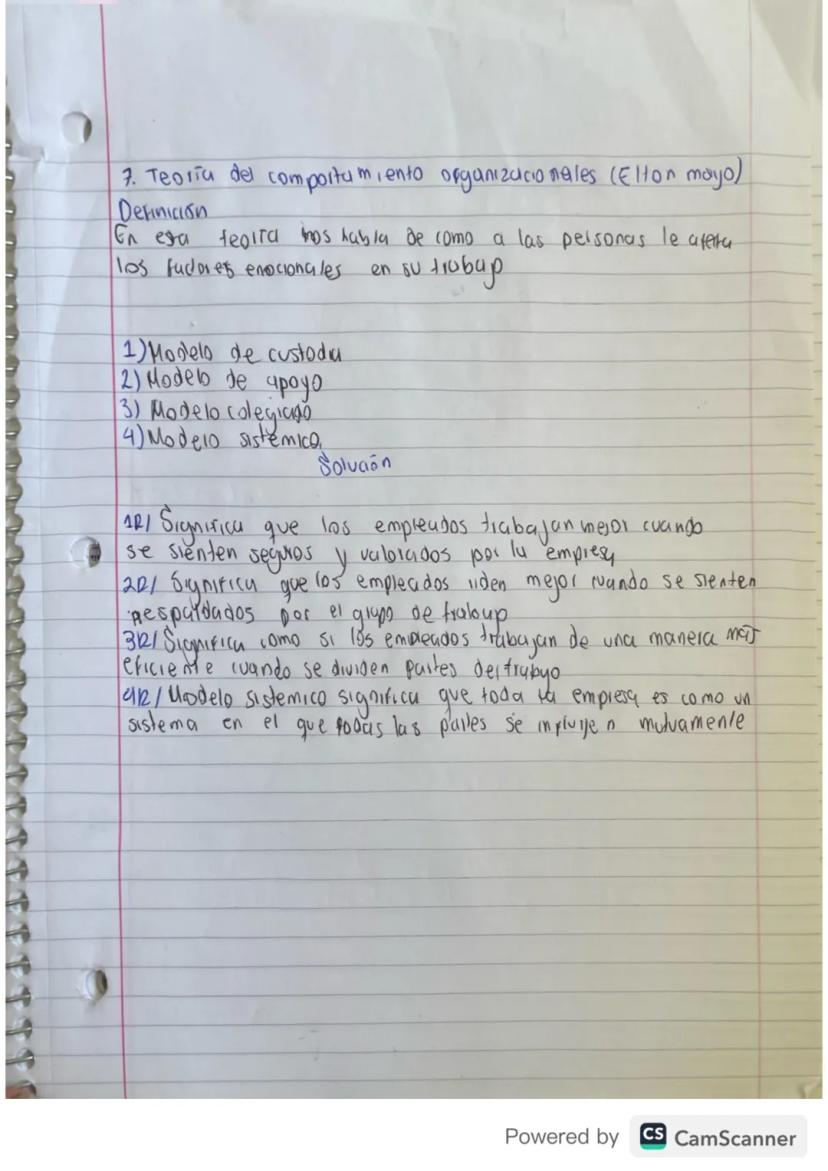 7. Teoría del comportamiento organizacionales (Elton mayo)
Definición
En esa teoria nos habla de como a las personas le afecta
los factores emocionales en su trabajo
1) Modelo de custodia
2) Modelo de apoyo
3) Modelo colegiado
4) Modelo sistémico
Solución
1R/ Significa que los empleados trabajan mejor cuando
se sienten seguros y valorados por la empresa
2R/ Significa que los empleados rinden mejor cuando se sienten
respaldados por el grupo de trabajo
3R/ Significa como si los empleados trabajan de una manera mas
eficiente cuando se dividen partes del trabajo
4R/ Modelo sistemico significa que toda la empresa es como un
sistema en el que todas las partes se influyen mutuamente
Powered by CS CamScanner